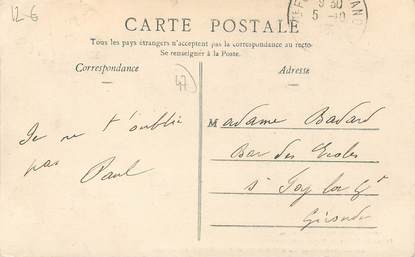 12-6
CARTE POSTALE
Tous les pays étrangers n'acceptent pas la correspondance au recto
Se renseigner à la Poste.
Correspondance
Adresse
47
Je ne t'oublie
pas
Paul
Madame Badard
Bar des Ecoles
Gironde
9 30
5 - 10